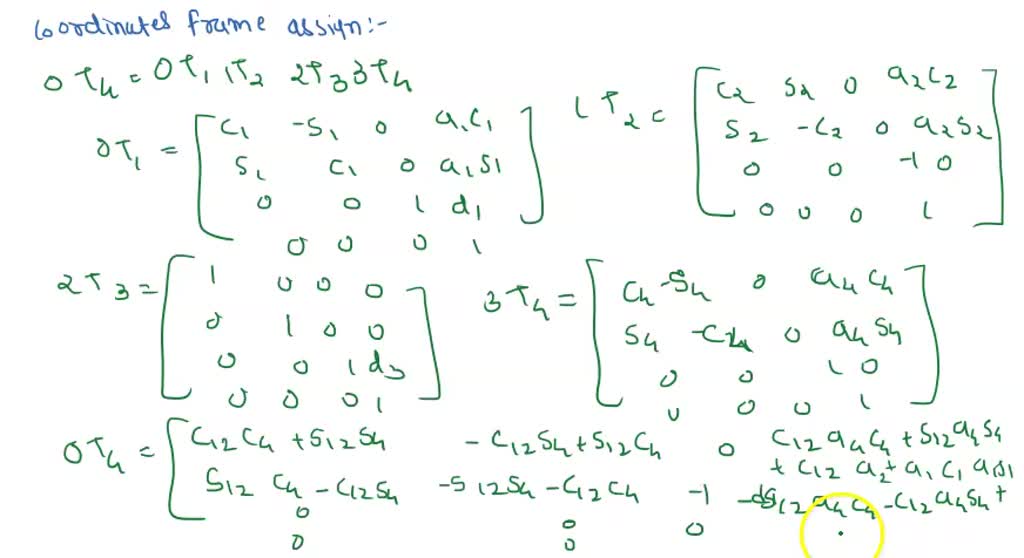 Coordinates frame assign:-
0T4 = 0T1 1T2 2T3 3T4
0T1 = [ C1 -S1 0 a1C1
S1 C1 0 a1S1
0 0 1 d1
0 0 0 1 ]
1T2 = [ C2 S2 0 a2C2
S2 -C2 0 a2S2
0 0 -1 0
0 0 0 1 ]
2T3 = [ 1 0 0 0
0 1 0 0
0 0 1 d3
0 0 0 1 ]
3T4 = [ C4 -S4 0 a4C4
S4 -C4 0 a4S4
0 0 1 0
0 0 0 1 ]
0T4 = [ C12C4 + S12S4 -C12S4 + S12C4 0 C12a4C4 + S12a4S4
+ C12 a2 + a1C1 a1S1
S12 C4 - C12S4 -S12S4 - C12C4 -1 S12a4C4 - C12a4S4 +
0 0 0
0 0